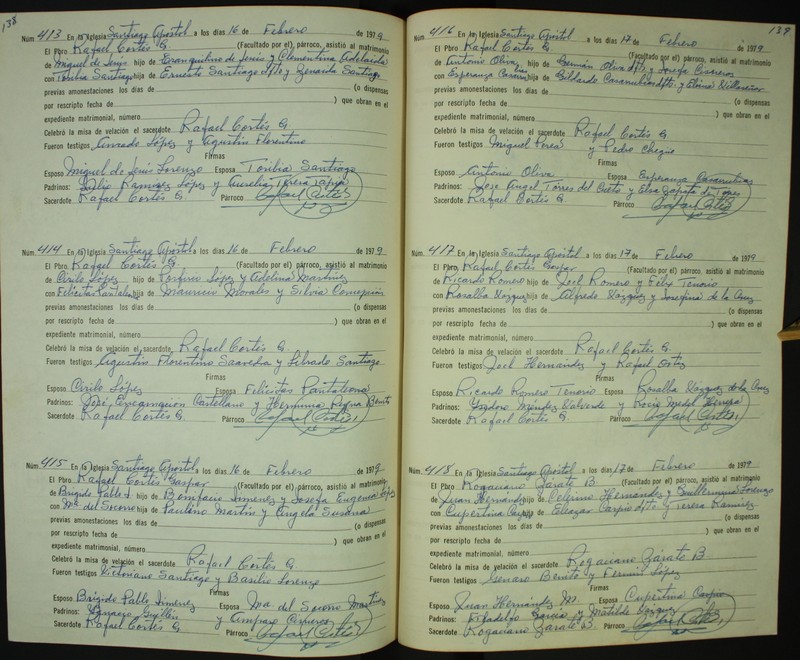 138
Núm. 413 En la Iglesia Santiago Apóstol a los días 16 de Febrero de 1979
El Pbro. Rafael Cortés G. (Facultado por el), párroco, asistió al matrimonio
de Miguel de Jesús hijo de Evanquilino de Jesús y Clementina Adelaida
con Toribia Santiago hija de Ernesto Santiago dfto y Zenaida Santiago
previas amonestaciones los días de (o dispensas
por rescripto fecha de ) que obran en el
expediente matrimonial, número
Celebró la misa de velación el sacerdote Rafael Cortés G
Fueron testigos Amado López y Agustín Florentino
Firmas
Esposo Miguel de Jesús Lorenzo Esposa Toribia Santiago
Padrinos: Julio Ramírez López y Aurelia Tapia
Sacerdote Rafael Cortés G Párroco Rafael Cortés
Núm. 414 En la Iglesia Santiago Apóstol a los días 16 de Febrero de 1979
El Pbro. Rafael Cortés G. (Facultado por el) párroco, asistió al matrimonio
de Cirilo López hijo de Porfirio López y Adelina Martínez
con Felicitas Pantaleona hija de Mauricio Morales y Silvia Concepción
previas amonestaciones los días de (o dispensas
por rescripto fecha de ) que obran en el
expediente matrimonial, número
Celebró la misa de velación el sacerdote Rafael Cortés G.
Fueron testigos Agustín Florentino Saavedra y Librado Santiago
Firmas
Esposo Cirilo López Esposa Felicitas Pantaleona
Padrinos: José Encarnación Castellano y Herminia Reyna Benito
Sacerdote Rafael Cortés G Párroco Rafael Cortés
Núm. 415 En la Iglesia Santiago Apóstol a los días 16 de Febrero de 1979
El Pbro. Rafael Cortés Gaspar (Facultado por el) párroco, asistió al matrimonio
de Brigido Pablo J hijo de Bonifacio Jiménez y Josefa Eugenia López
con Ma. del Socorro hija de Paulino Martín y Angela Susana
previas amonestaciones los días de (o dispensas
por rescripto fecha de ) que obran en el
expediente matrimonial, número
Celebró la misa de velación el sacerdote Rafael Cortés G.
Fueron testigos Victoriano Santiago y Basilio Lorenzo
Firmas
Esposo Brigido Pablo Jiménez Esposa Ma. del Socorro Martínez
Padrinos: Ignacio Guillén y Amparo Cisneros
Sacerdote Rafael Cortés G Párroco Rafael Cortés
139
Núm. 416 En la Iglesia Santiago Apóstol a los días 17 de Febrero de 1979
El Pbro. Rafael Cortés G. (Facultado por el) párroco, asistió al matrimonio
de Antonio Oliva hijo de Germán Oliva dfto y Josefa Cisneros
con Esperanza hija de Gildardo dfto y Eloina Villaseñor
previas amonestaciones los días de (o dispensas
por rescripto fecha de ) que obran en el
expediente matrimonial, número
Celebró la misa de velación el sacerdote Rafael Cortés G
Fueron testigos Miguel Perea y Pedro Cheque
Firmas
Esposo Antonio Oliva Esposa Esperanza
Padrinos: Jose Angel Torres del Cueto y Elsa Zapata de Torres
Sacerdote Rafael Cortés G Párroco Rafael Cortés
Núm. 417 En la Iglesia Santiago Apóstol a los días 17 de Febrero de 1979
El Pbro. Rafael Cortés Gaspar (Facultado por el) párroco, asistió al matrimonio
de Ricardo Romero hijo de Joel Romero y Félix Tenorio
con Rosalba Vázquez hija de Alfredo Vázquez y Josefina de la Cruz
previas amonestaciones los días de (o dispensas
por rescripto fecha de ) que obran en el
expediente matrimonial, número
Celebró la misa de velación el sacerdote Rafael Cortés G.
Fueron testigos Joel Hernandez y Rafael Ortiz
Firmas
Esposo Ricardo Romero Tenorio Esposa Rosalba Vazquez de la Cruz
Padrinos: Isidoro Méndez Valverde y Rocío Medel Herrera
Sacerdote Rafael Cortés G Párroco Rafael Cortés
Núm. 418 En la Iglesia Santiago Apóstol a los días 17 de Febrero de 1979
El Pbro. Rogaciano Zárate B. (Facultado por el) párroco, asistió al matrimonio
de Juan Hernández hijo de Celerino Hernández y Guillermina Lorenzo
con Cupertina Carpio hija de Eleazar Carpio dfto. y Teresa Ramírez
previas amonestaciones los días de (o dispensas
por rescripto fecha de ) que obran en el
expediente matrimonial, número
Celebró la misa de velación el sacerdote Rogaciano Zárate B.
Fueron testigos Genaro Benito y Fermín López
Firmas
Esposo Juan Hernández M. Esposa Cupertina Carpio
Padrinos: Filadelfo García y Matilde Vázquez
Sacerdote Rogaciano Zárate B. Párroco Rafael Cortés